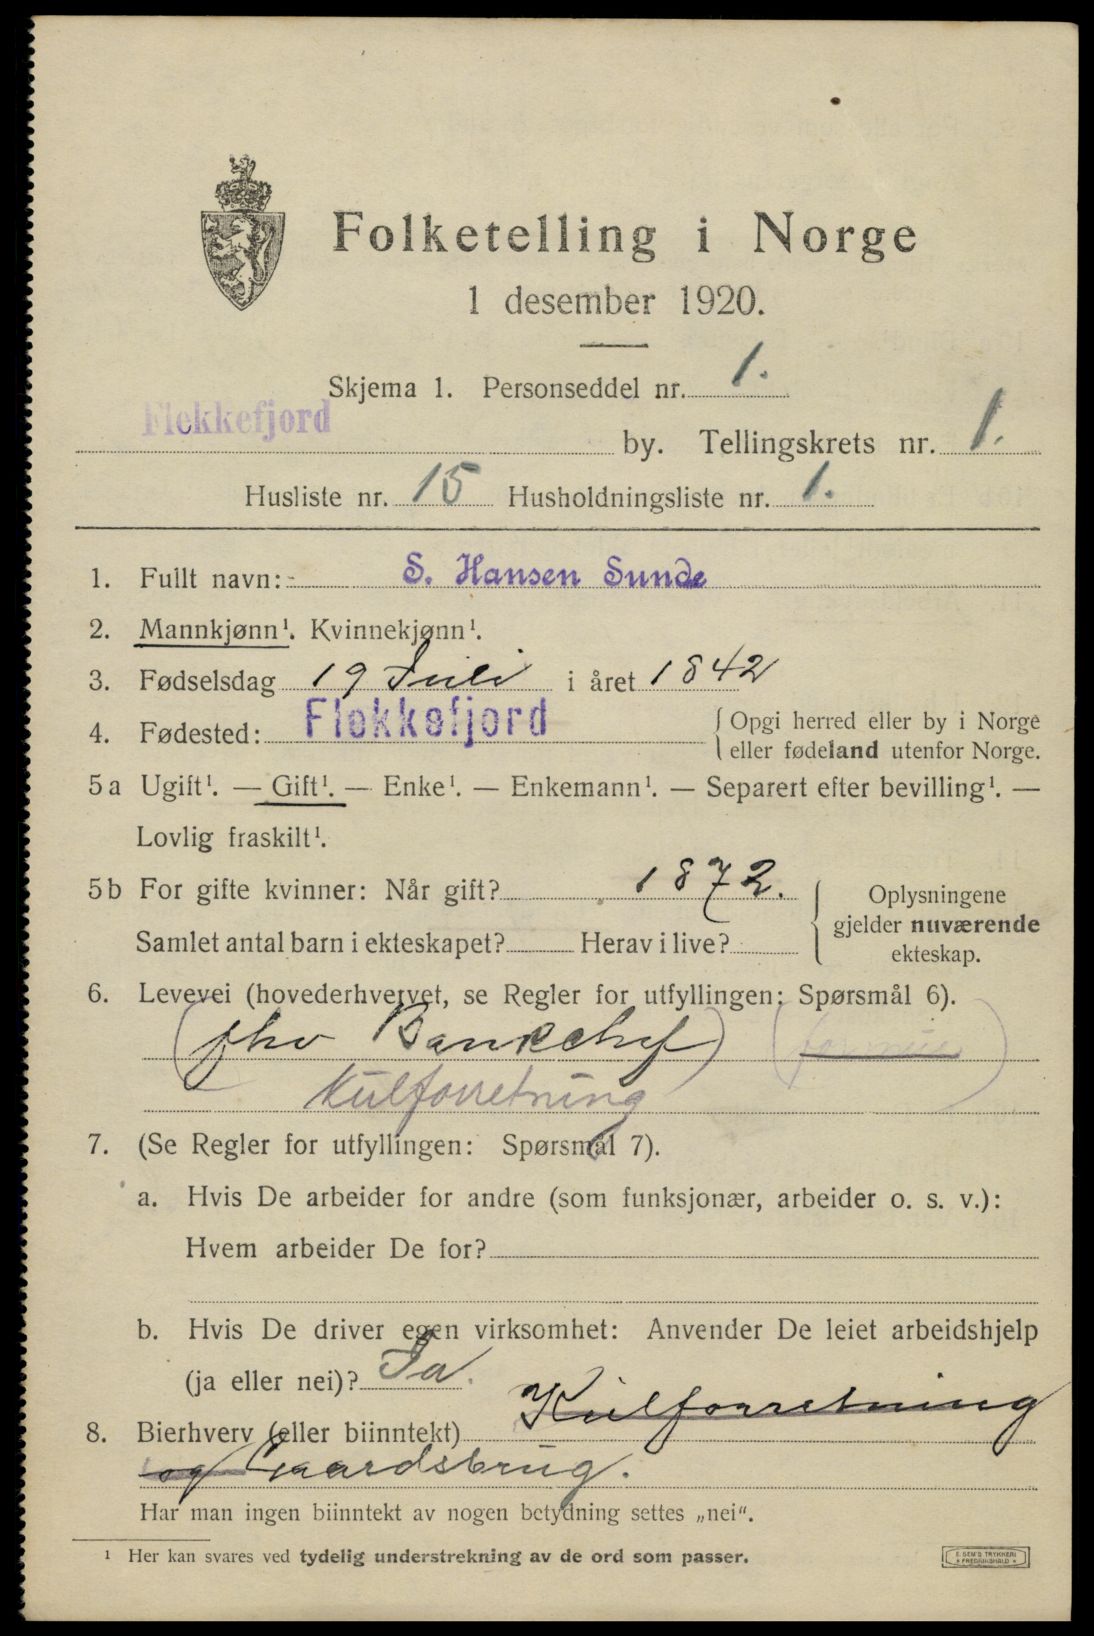 Folketelling i Norge
1 desember 1920.
Skjema 1. Personseddel nr. 1.
Flekkefjord by. Tellingskrets nr. 1.
Husliste nr. 15 Husholdningsliste nr. 1.
1. Fullt navn: S. Hansen Sunde
2. Mannkjønn¹. Kvinnekjønn¹.
3. Fødselsdag 19 Juli i året 1842
4. Fødested: Flekkefjord { Opgi herred eller by i Norge
eller fødeland utenfor Norge.
5 a Ugift¹. — Gift¹. — Enke¹. — Enkemann¹. — Separert efter bevilling¹. —
Lovlig fraskilt¹.
5 b For gifte kvinner: Når gift? 1872.
Samlet antal barn i ekteskapet? Herav i live?
Oplysningene
gjelder nuværende
ekteskap.
6. Levevei (hovederhvervet, se Regler for utfyllingen: Spørsmål 6).
(fhv Bankchef)
Kulforretning
7. (Se Regler for utfyllingen: Spørsmål 7).
a. Hvis De arbeider for andre (som funksjonær, arbeider o. s. v.):
Hvem arbeider De for?
b. Hvis De driver egen virksomhet: Anvender De leiet arbeidshjelp
(ja eller nei)? Ja.
8. Bierhverv (eller biinntekt) Kulforretning
og Gaardsbrug.
Har man ingen biinntekt av nogen betydning settes „nei".
¹ Her kan svares ved tydelig understrekning av de ord som passer.
E. SEM'S TRYKKERI
* FREDRIKSHALD *